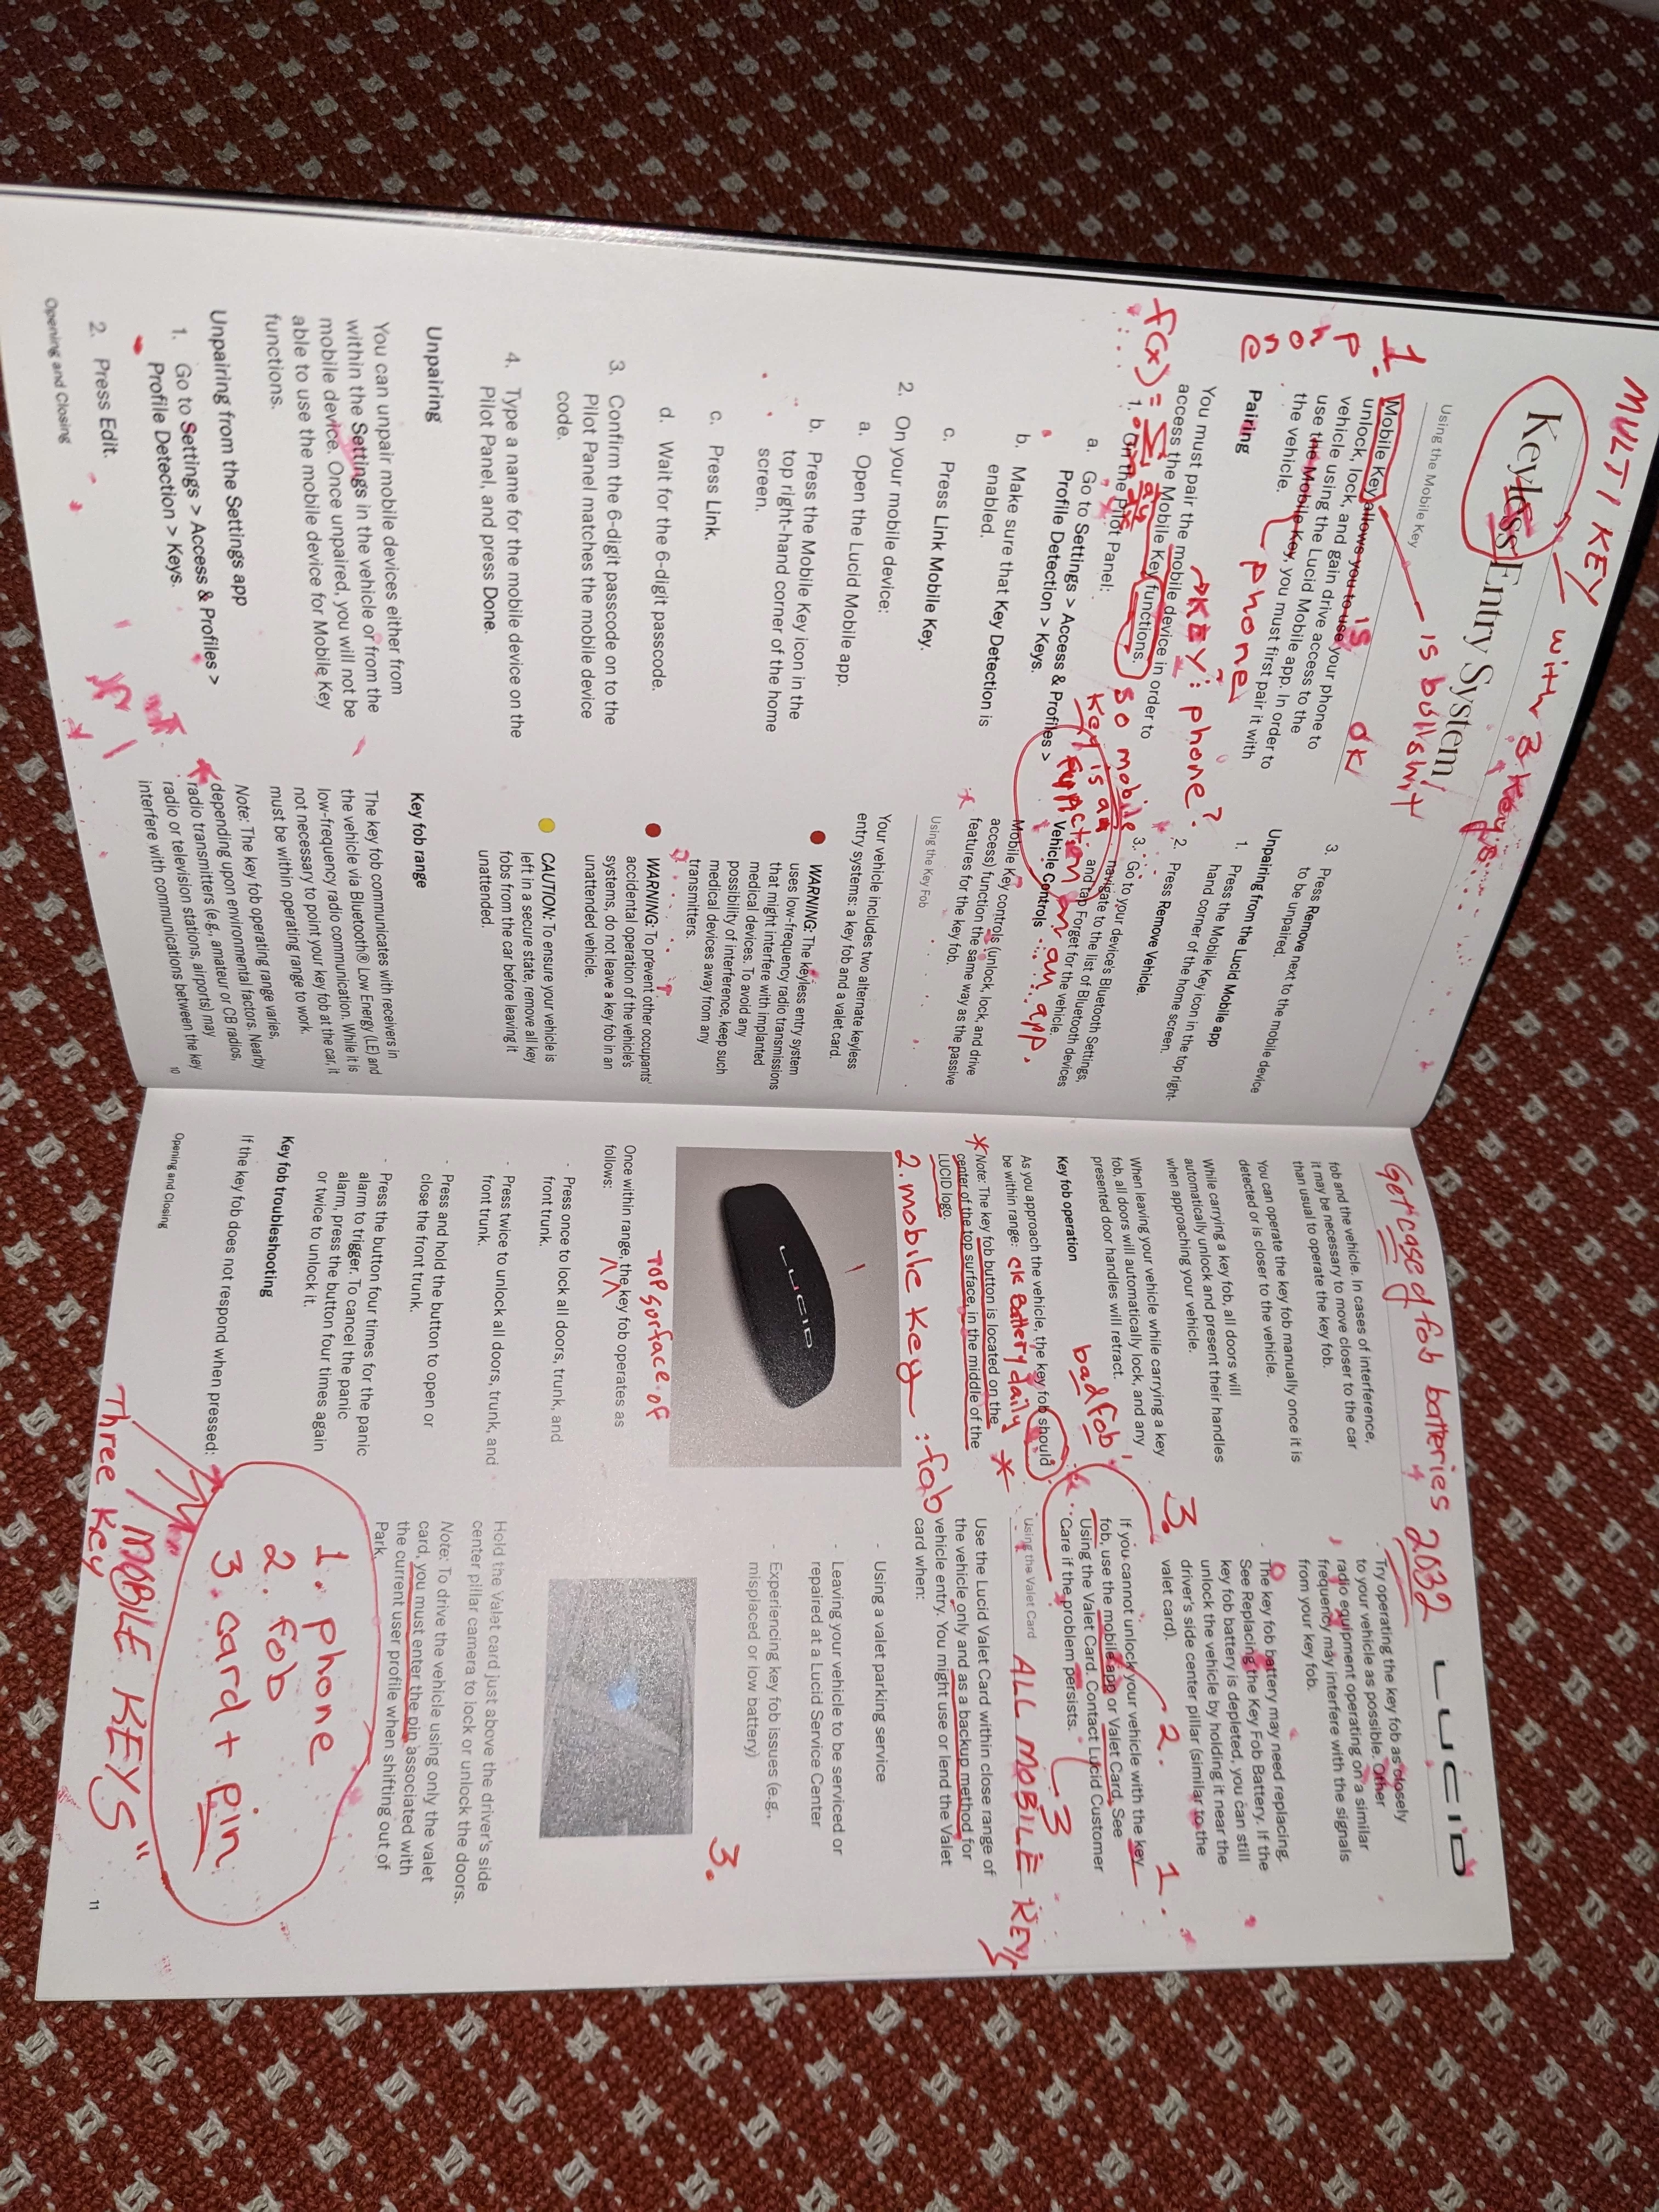 MULTI KEY
with 3 keys
Keyless Entry System
is bullshit
Using the Mobile Key
1.
phone
is
ok
Mobile Key allows you to use your phone to
unlock, lock, and gain drive access to the
vehicle using the Lucid Mobile app. In order to
use the Mobile Key, you must first pair it with
the vehicle.
phone
Pairing
KEY: phone?
You must pair the mobile device in order to
access the Mobile Key functions.
so mobile
key is a
function
in an app.
f(x) =
1. On the Pilot Panel:
a. Go to Settings > Access & Profiles >
Profile Detection > Keys.
b. Make sure that Key Detection is
enabled.
c. Press Link Mobile Key.
2. On your mobile device:
a. Open the Lucid Mobile app.
b. Press the Mobile Key icon in the
top right-hand corner of the home
screen.
c. Press Link.
d. Wait for the 6-digit passcode.
3. Confirm the 6-digit passcode on to the
Pilot Panel matches the mobile device
code.
4. Type a name for the mobile device on the
Pilot Panel, and press Done.
Unpairing
You can unpair mobile devices either from
within the Settings in the vehicle or from the
mobile device. Once unpaired, you will not be
able to use the mobile device for Mobile Key
functions.
Unpairing from the Settings app
1. Go to Settings > Access & Profiles >
Profile Detection > Keys.
2. Press Edit.
Opening and Closing
3. Press Remove next to the mobile device
to be unpaired.
Unpairing from the Lucid Mobile app
1. Press the Mobile Key icon in the top right-
hand corner of the home screen.
2. Press Remove Vehicle.
3. Go to your device's Bluetooth Settings,
navigate to the list of Bluetooth devices
and tap Forget for the vehicle.
Vehicle Controls
Mobile Key controls (unlock, lock, and drive
access) function the same way as the passive
features for the key fob.
Using the Key Fob
Your vehicle includes two alternate keyless
entry systems: a key fob and a valet card.
WARNING: The keyless entry system
uses low-frequency radio transmissions
that might interfere with implanted
medical devices. To avoid any
possibility of interference, keep such
medical devices away from any
transmitters.
WARNING: To prevent other occupants'
accidental operation of the vehicle's
systems, do not leave a key fob in an
unattended vehicle.
CAUTION: To ensure your vehicle is
left in a secure state, remove all key
fobs from the car before leaving it
unattended.
Key fob range
The key fob communicates with receivers in
the vehicle via Bluetooth® Low Energy (LE) and
low-frequency radio communication. While it is
not necessary to point your key fob at the car, it
must be within operating range to work.
Note: The key fob operating range varies,
depending upon environmental factors. Nearby
radio transmitters (e.g., amateur or CB radios,
radio or television stations, airports) may
interfere with communications between the key
10
Get case of fob batteries 2032
LUCID
fob and the vehicle. In cases of interference,
it may be necessary to move closer to the car
than usual to operate the key fob.
You can operate the key fob manually once it is
detected or is closer to the vehicle.
While carrying a key fob, all doors will
automatically unlock and present their handles
when approaching your vehicle.
When leaving your vehicle while carrying a key
fob, all doors will automatically lock, and any
presented door handles will retract.
bad fob!
Key fob operation
As you approach the vehicle, the key fob should
be within range:
ck Battery daily *
* Note: The key fob button is located on the
center of the top surface, in the middle of the
LUCID logo.
2. mobile key : fob
LUCID
TOP surface of
Once within range, the key fob operates as
follows:
- Press once to lock all doors, trunk, and
front trunk.
- Press twice to unlock all doors, trunk, and
front trunk.
- Press and hold the button to open or
close the front trunk.
- Press the button four times for the panic
alarm to trigger. To cancel the panic
alarm, press the button four times again
or twice to unlock it.
Key fob troubleshooting
If the key fob does not respond when pressed:
Opening and Closing
- Try operating the key fob as closely
to your vehicle as possible. Other
radio equipment operating on a similar
frequency may interfere with the signals
from your key fob.
- The key fob battery may need replacing.
See Replacing the Key Fob Battery. If the
key fob battery is depleted, you can still
unlock the vehicle by holding it near the
driver's side center pillar (similar to the
valet card).
3.
2.
1.
If you cannot unlock your vehicle with the key
fob, use the mobile app or Valet Card. See
Using the Valet Card. Contact Lucid Customer
Care if the problem persists.
3
Using the Valet Card
ALL MOBILE KEYS
Use the Lucid Valet Card within close range of
the vehicle only and as a backup method for
vehicle entry. You might use or lend the Valet
card when:
- Using a valet parking service
- Leaving your vehicle to be serviced or
repaired at a Lucid Service Center
- Experiencing key fob issues (e.g.,
misplaced or low battery)
3.
Hold the Valet card just above the driver's side
center pillar camera to lock or unlock the doors.
Note: To drive the vehicle using only the valet
card, you must enter the pin associated with
the current user profile when shifting out of
Park.
1. phone
2. fob
3. card + pin
Three "MOBILE KEYS"
Key
11